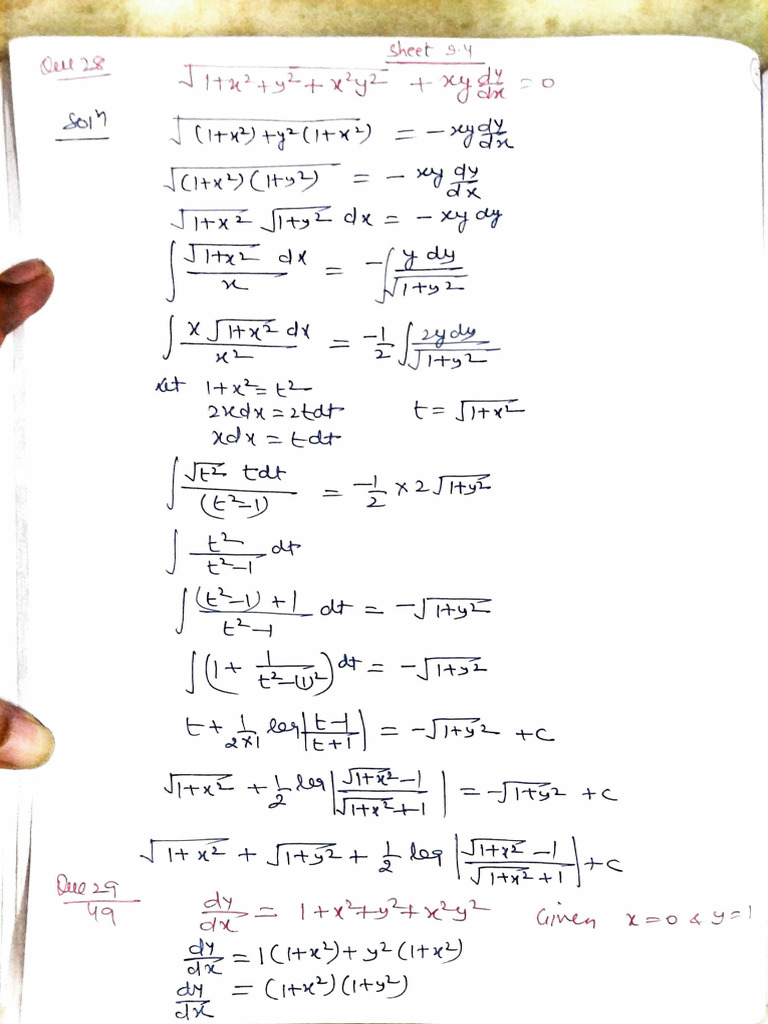 Sheet 9.4
Que 28 √1+x²+y²+x²y² + xy dy/dx = 0
Solⁿ √(1+x²)+y²(1+x²) = -xy dy/dx
√(1+x²)(1+y²) = - xy dy/dx
√1+x² √1+y² dx = - xy dy
∫ √1+x² dx / x = -∫ y dy / √1+y²
∫ x √1+x² dx / x² = -1/2 ∫ 2y dy / √1+y²
Let 1+x²=t²
2xdx = 2tdt t = √1+x²
xdx = tdt
∫ √t² tdt / (t²-1) = -1/2 × 2√1+y²
∫ t² / t²-1 dt
∫ (t²-1)+1 / t²-1 dt = -√1+y²
∫(1 + 1/t²-(1)²) dt = -√1+y²
t + 1/2×1 log|t-1/t+1| = -√1+y² +c
√1+x² + 1/2 log|√1+x²-1 / √1+x²+1| = -√1+y² +c
√1+x² + √1+y² + 1/2 log |√1+x² -1 / √1+x² +1| +c
Que 29/49 dy/dx = 1+x²+y²+x²y² Given x=0 & y=1
dy/dx = 1(1+x²)+ y²(1+x²)
dy/dx = (1+x²)(1+y²)